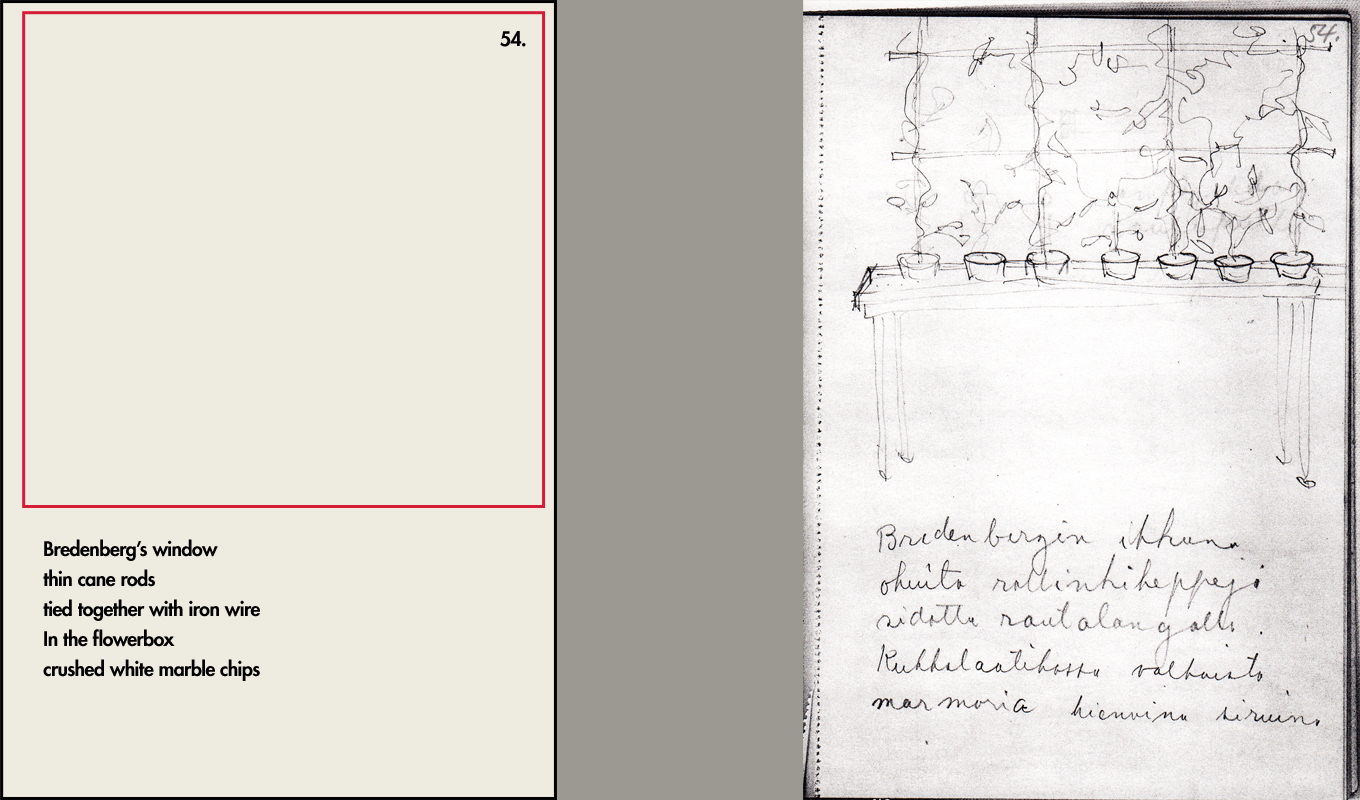 54.
Bredenberg's window
thin cane rods
tied together with iron wire
In the flowerbox
crushed white marble chips
54.
Bredenbergin ikkuna
ohuita rottinkikeppejä
sidottu rautalangalla.
Kukkalaatikossa valkoista
marmoria hienoina siruina